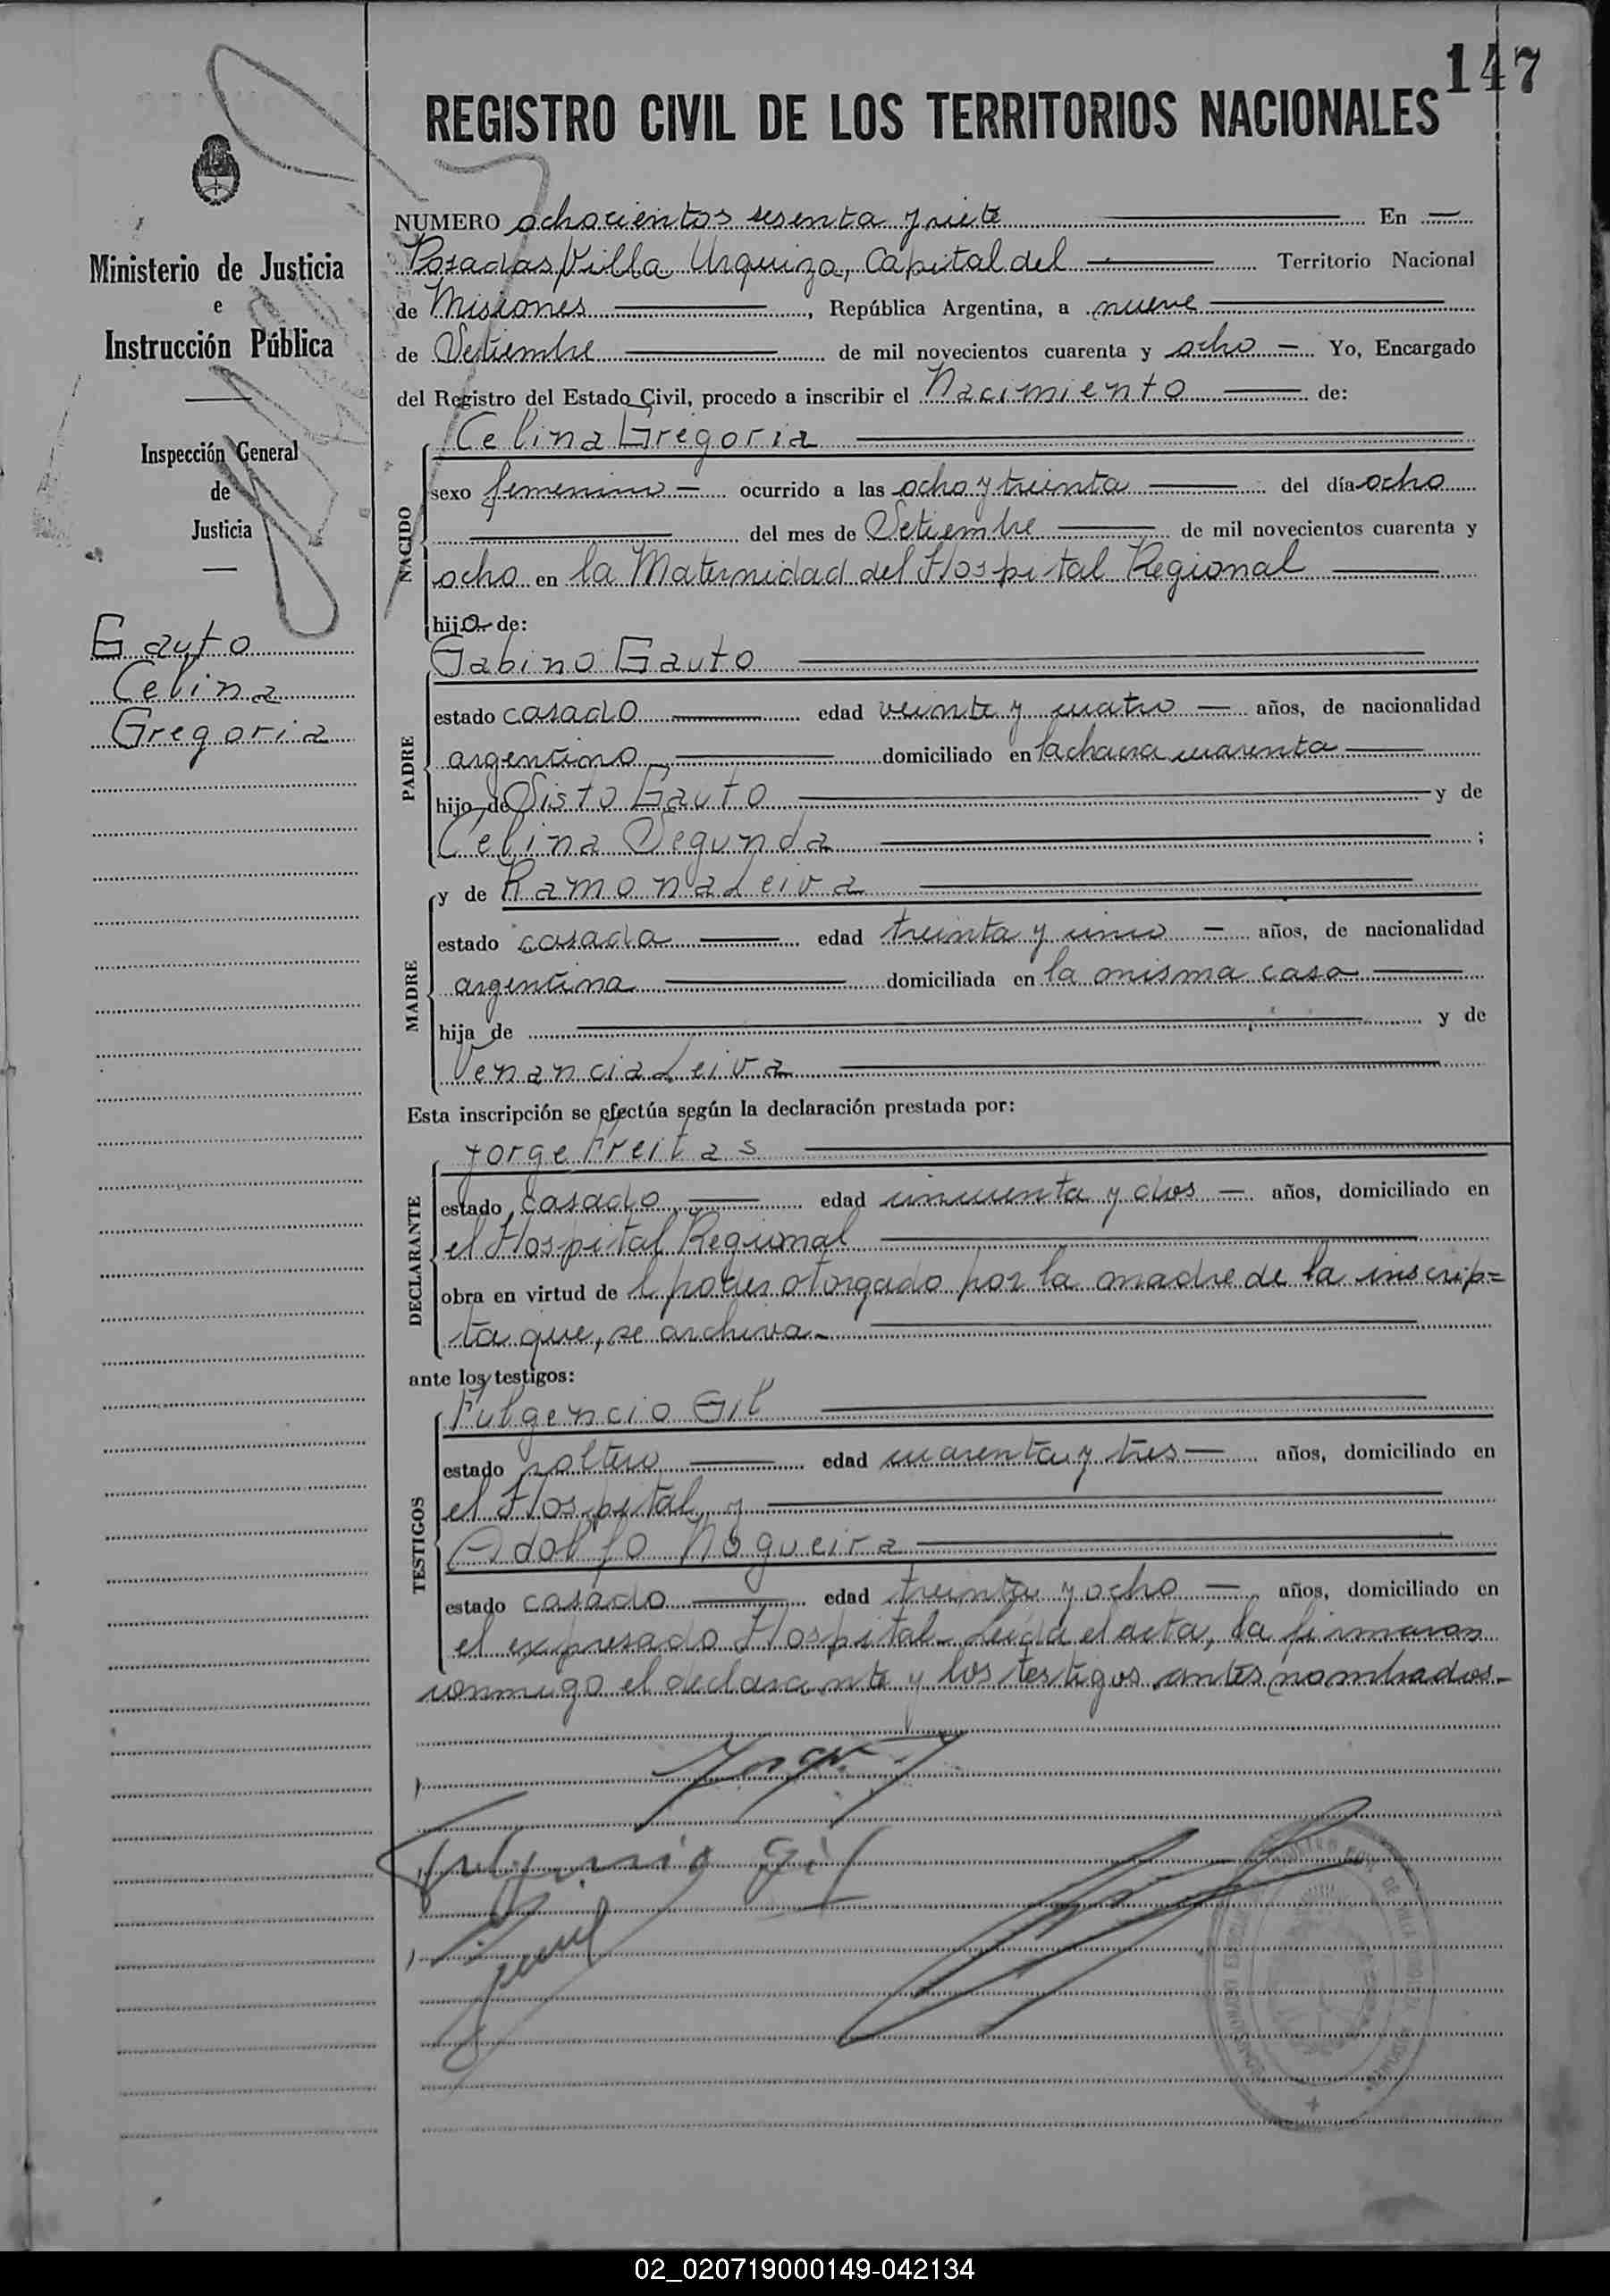 147
REGISTRO CIVIL DE LOS TERRITORIOS NACIONALES
Ministerio de Justicia
e
Instrucción Pública
Inspección General
de
Justicia
Gauto
Celina
Gregoria
NUMERO ochocientos sesenta y siete En
Posadas, Villa Urquiza, Capital del Territorio Nacional
de Misiones, República Argentina, a nueve
de Setiembre de mil novecientos cuarenta y ocho Yo, Encargado
del Registro del Estado Civil, procedo a inscribir el Nacimiento de:
NACIDO
Celina Gregoria
sexo femenino ocurrido a las ocho y treinta del día ocho
del mes de Setiembre de mil novecientos cuarenta y
ocho en la Maternidad del Hospital Regional
hija de:
PADRE
Gabino Gauto
estado casado edad veinte y cuatro años, de nacionalidad
argentino domiciliado en la chacra cuarenta
hijo de Sisto Gauto y de
Celina Segunda ;
MADRE
y de Ramona Leiva
estado casada edad treinta y uno años, de nacionalidad
argentina domiciliada en la misma casa
hija de y de
Venancia Leiva
Esta inscripción se efectúa según la declaración prestada por:
DECLARANTE
Jorge Freitas
estado casado edad cincuenta y dos años, domiciliado en
el Hospital Regional
obra en virtud de l poder otorgado por la madre de la inscrip=
ta que, se archiva.-
ante los testigos:
TESTIGOS
Fulgencio Gil
estado soltero edad cuarenta y tres años, domiciliado en
el Hospital y
Adolfo Nogueira
estado casado edad treinta y ocho años, domiciliado en
el expresado Hospital. Leída el acta, la firmaron
conmigo el declarante y los testigos antes nombrados.-
Fulgencio Gil
02_020719000149-042134